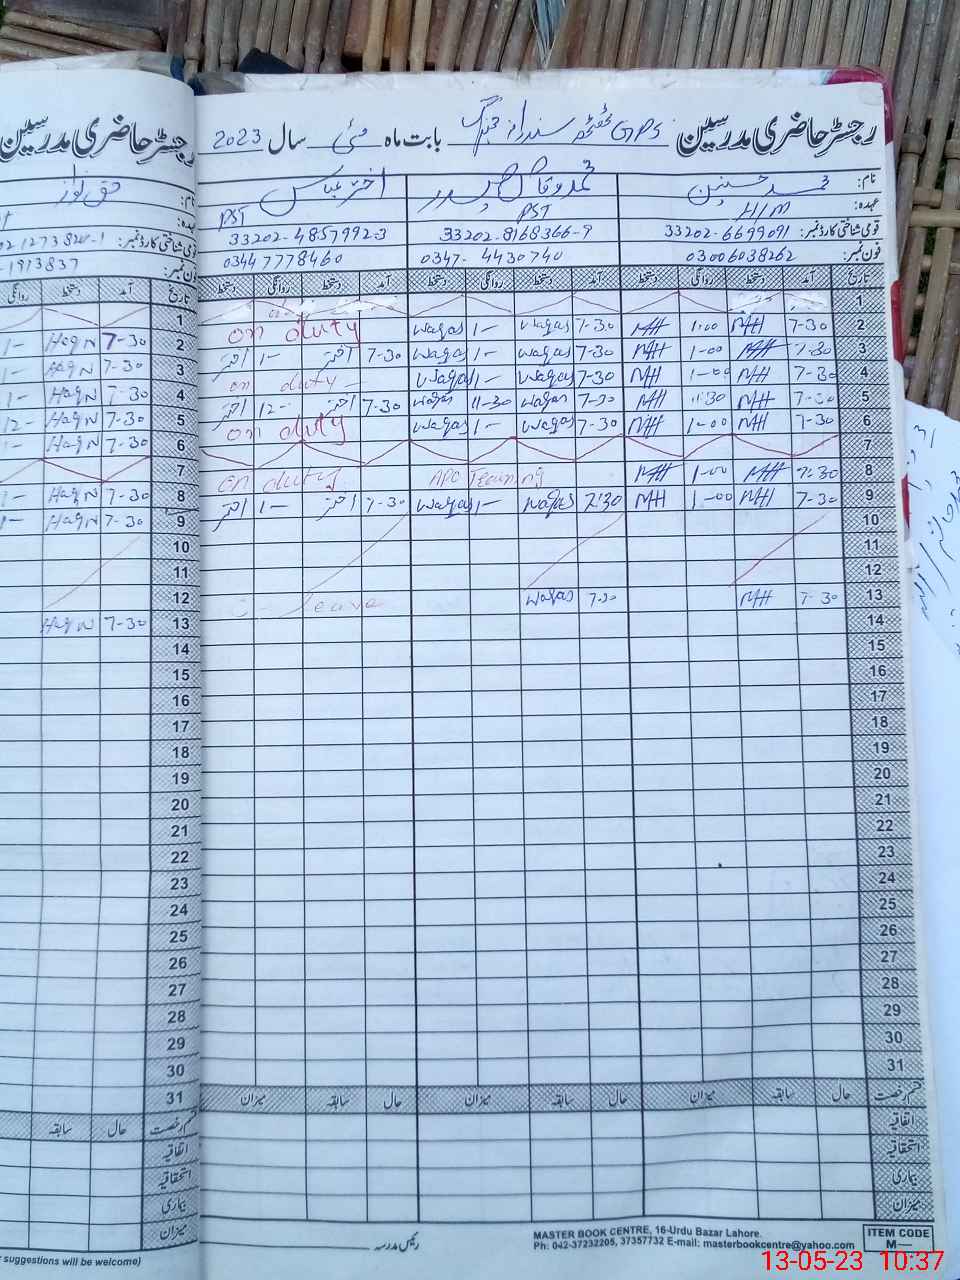 رجسٹر حاضری مدرسین GPS ٹھٹھہ سندرانہ جھنگ بابت ماہ مئی سال 2023
رجسٹر حاضری مدرسین
نام: محمد حسنین محمد وقاص حیدر اختر عباس
نام: حق نواز
عہدہ: H/M PST PST
عہدہ:
قومی شناختی کارڈ نمبر: 33202-6699091 33202-8168366-9 33202-4857992-3
قومی شناختی کارڈ نمبر:
فون نمبر: 03006038262 0347-4430740 03447778460
فون نمبر: -1913837
تاریخ آمد دستخط روانگی دستخط آمد دستخط روانگی دستخط آمد دستخط روانگی دستخط
تاریخ آمد دستخط روانگی
1
2 7-30 MH 1-00 MH 7-30 waqas 1- waqas on duty
3 7-30 MH 1-00 MH 7-30 waqas 1- waqas 7-30 اختر 1- اختر
4 7-30 MH 1-00 MH 7-30 waqas 1- waqas on duty
5 7-30 MH 11-30 MH 7-30 waqas 11-30 waqas 7-30 اختر 12- اختر
6 7-30 MH 1-00 MH 7-30 waqas 1- waqas on duty
7
8 7-30 MH 1-00 MH on duty
9 7-30 MH 1-00 MH 7:30 waqas 1- waqas 7-30 اختر 1- اختر
10
11
12
13 7-30 MH 7-30 waqas leave
14
15
16
17
18
19
20
21
22
23
24
25
26
27
28
29
30
31
1
2 7-30 Haq N 1-
3 7-30 Haq N 1-
4 7-30 Haq N 1-
5 7-30 Haq N 12-
6 7-30 Haq N 1-
7
8 7-30 Haq N 1-
9 7-30 Haq N 1-
10
11
12
13 7-30 Haq N
14
15
16
17
18
19
20
21
22
23
24
25
26
27
28
29
30
31
قسم رخصت حال سابقہ میزان حال سابقہ میزان حال سابقہ میزان
اتفاقیہ
استحقاقیہ
بیماری
میزان
قسم رخصت حال سابقہ
اتفاقیہ
استحقاقیہ
بیماری
میزان
رئیس مدرسہ
MASTER BOOK CENTRE, 16-Urdu Bazar Lahore.
Ph: 042-37232205, 37357732 E-mail: masterbookcentre@yahoo.com
ITEM CODE
M—
suggestions will be welcome)
13-05-23 10:37